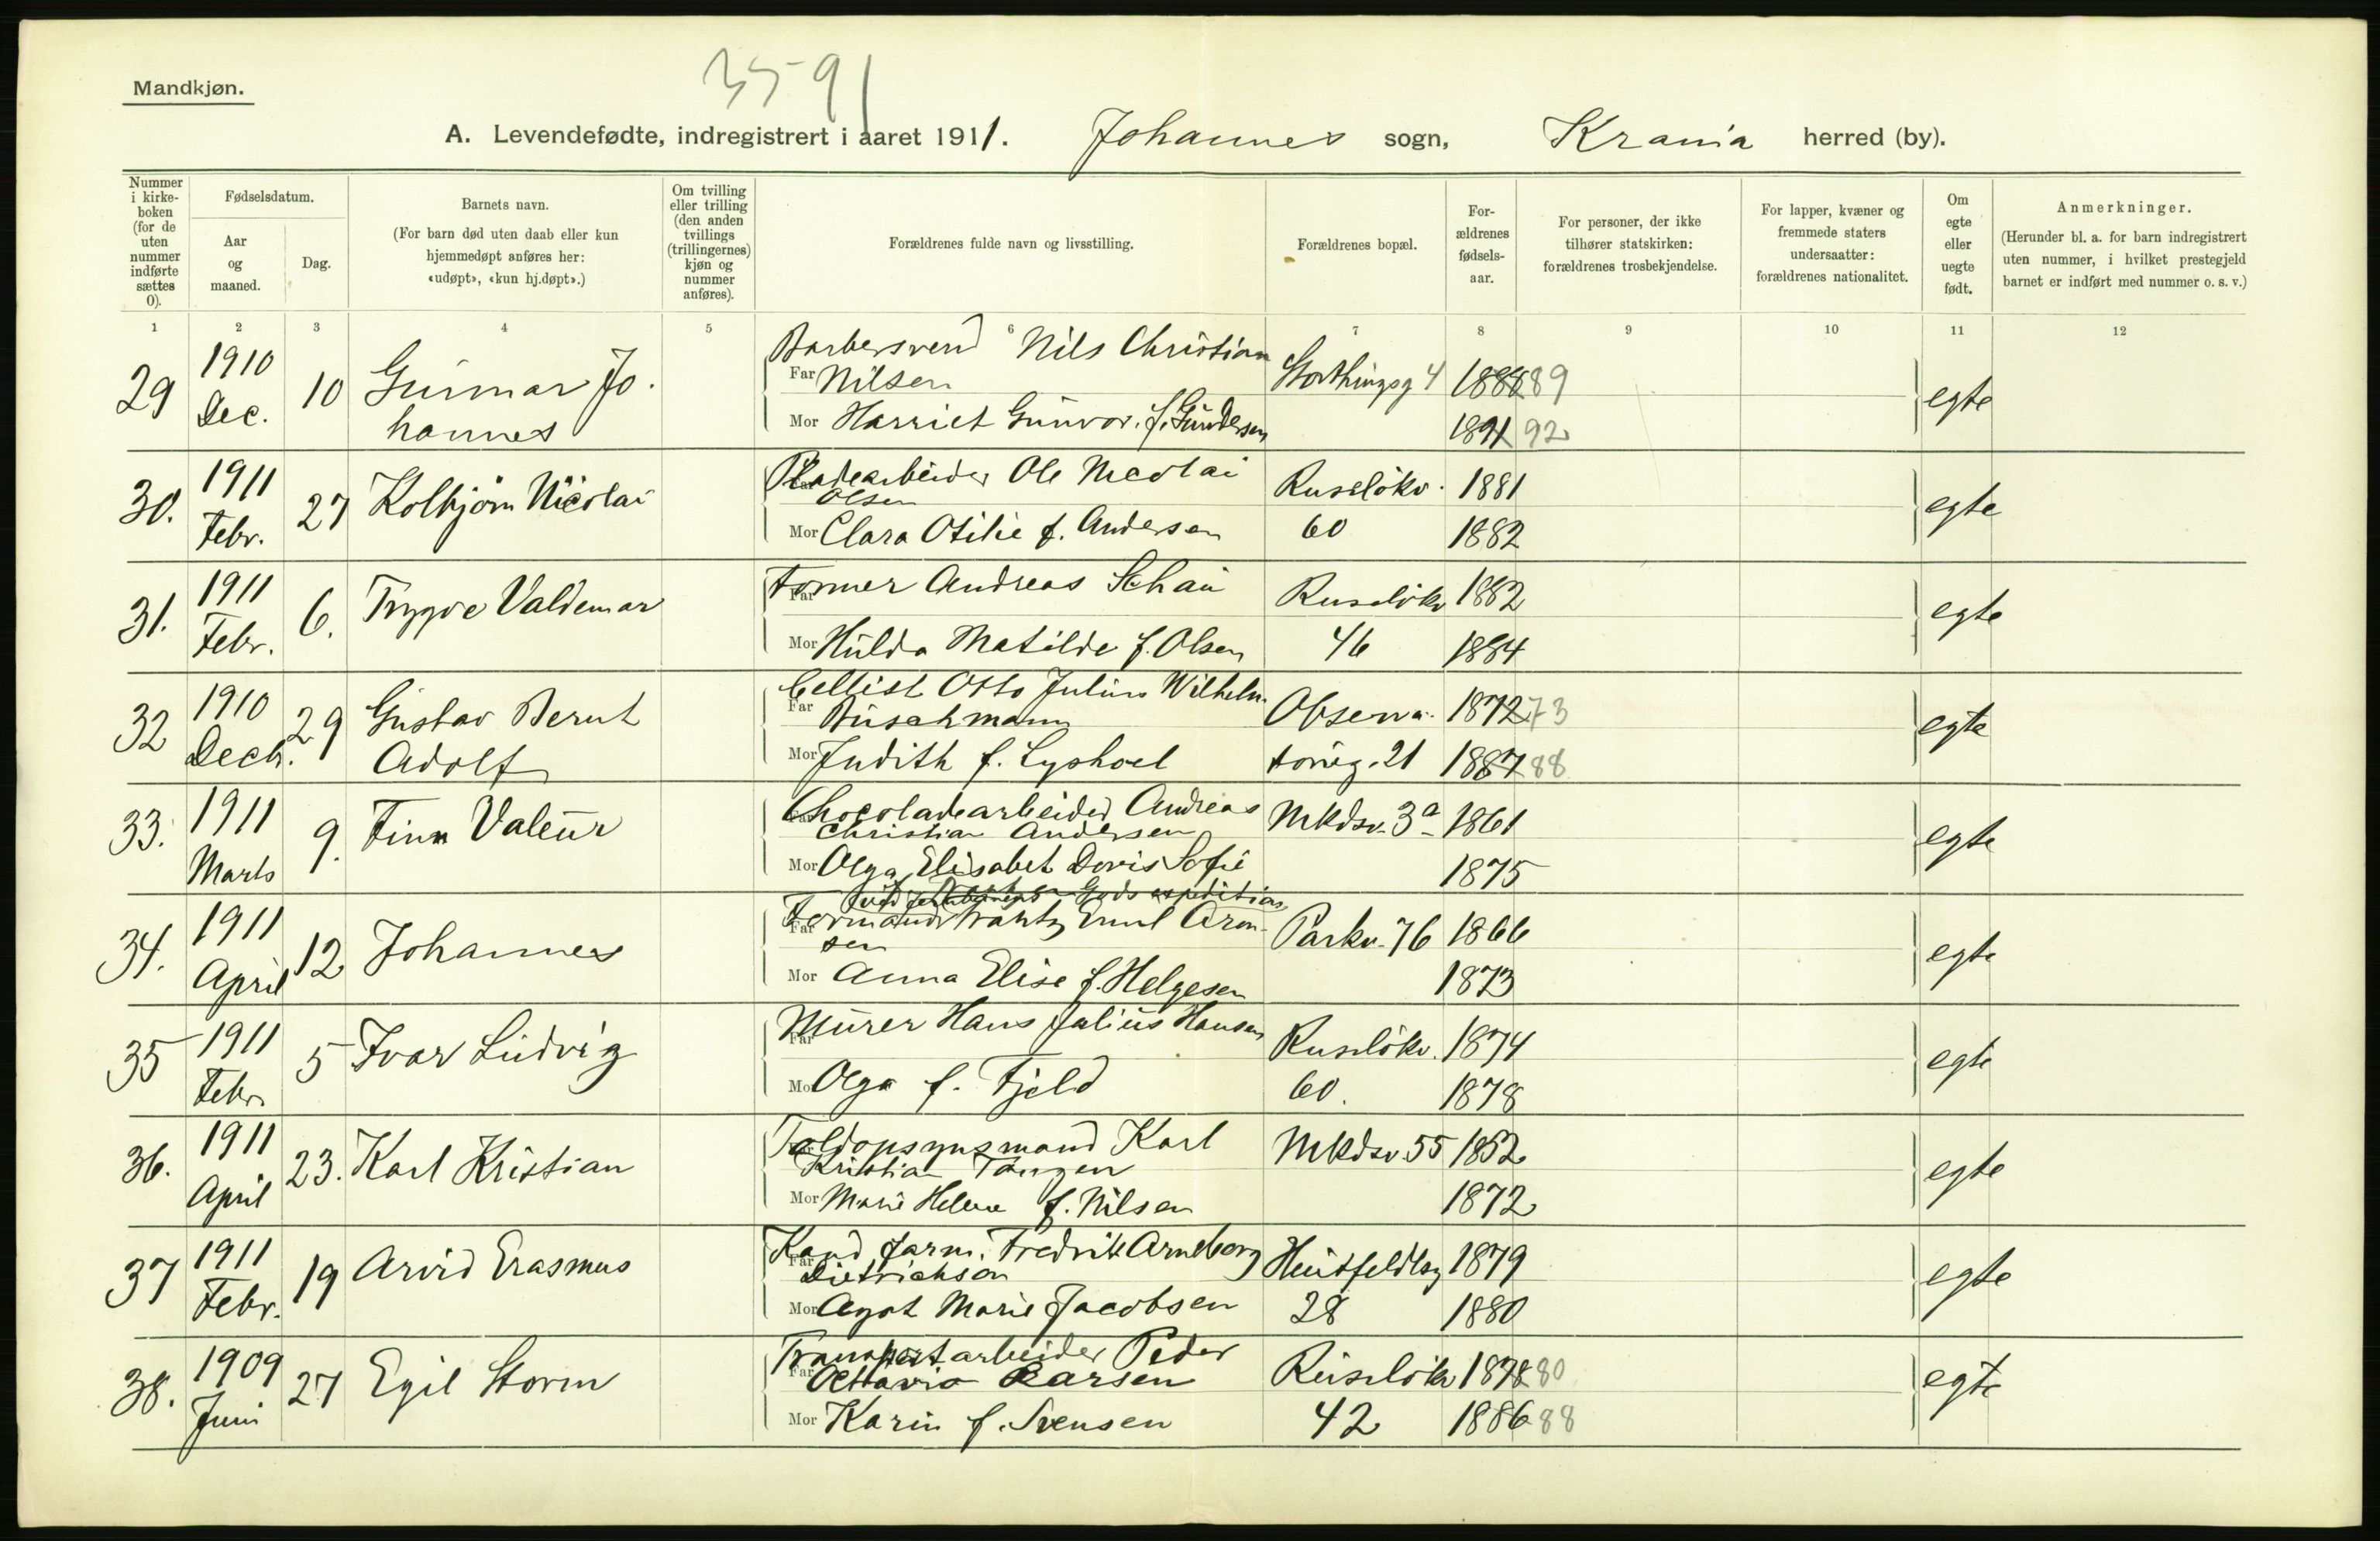 3591
Mandkjøn.
A. Levendefødte, indregistrert i aaret 1911. Johannes sogn, Krania herred (by).
Nummer i kirke-boken (for de uten nummer indførte sættes 0).
Fødselsdatum.
Aar og maaned.
Dag.
Barnets navn.
(For barn død uten daab eller kun hjemmedøpt anføres her: «udøpt», «kun hj.døpt».)
Om tvilling eller trilling (den anden tvillings (trillingernes) kjøn og nummer anføres).
Forældrenes fulde navn og livsstilling.
Forældrenes bopæl.
For-ældrenes fødsels-aar.
For personer, der ikke tilhører statskirken: forældrenes trosbekjendelse.
For lapper, kvæner og fremmede staters undersaatter: forældrenes nationalitet.
Om egte eller uegte født.
Anmerkninger.
(Herunder bl. a. for barn indregistrert uten nummer, i hvilket prestegjeld barnet er indført med nummer o. s. v.)
1 2 3 4 5 6 7 8 9 10 11 12
29 1910 Dec. 10 Gunnar Jo-
hannes
Barbersvend Nils Christian
Far Nilsen
Storthingsg 4 1888 89
Mor Harriet Gunvor. f. Gundersen 1891 92
egte
30. 1911 Febr. 27 Kolbjörn Nicolai
Pladearbeider Ole Nicolai
Olsen
Ruselökv. 1881
Mor Clara Otilie f. Andersen 60 1882
egte
31. 1911 Febr. 6. Trygve Valdemar
Far Former Andreas Schau Ruselökv 1882
Mor Hulda Matilde f. Olsen 46 1884
egte
32 1910 Decb. 29 Gustav Bernt
Adolf
Cellist Otto Julius Wilhelm
Far Buschmann
Observa- 1872 73
Mor Judith f. Lyshoel torieg. 21 1887 88
egte
33. 1911 Marts 9. Finn Valeur
Chocoladearbeider Andreas
Christian Andersen
Mkdsv. 3a 1861
Mor Olga Elisabet Doris Sofie 1875
egte
34. 1911 April 12 Johannes
Gods expedition
Formand Emil Aron-
sen
Parkv. 76 1866
Mor Anna Elise f. Helgesen 1873
egte
35 1911 Febr. 5 Ivar Ludvig
Far Murer Hans Julius Hansen Ruselökv. 1874
Mor Olga f. Fjeld 60. 1878
egte
36. 1911 April 23. Karl Kristian
Toldopsynsmand Karl
Kristian Tangen
Mkdsv. 55 1852
Mor Marie Helene f. Nilsen 1872
egte
37 1911 Febr. 19 Arvid Erasmus
Kand farm. Fredrik Arneberg
Far Dietrichson
Huitfeldtsg 1879
Mor Agot Marie Jacobsen 28 1880
egte
38. 1909 Juni 27 Egil Storm
Transportarbeider Peder
Far Octavio Larsen
Ruselökv 1878 80
Mor Karin f. Svensen 42 1886 88
egte